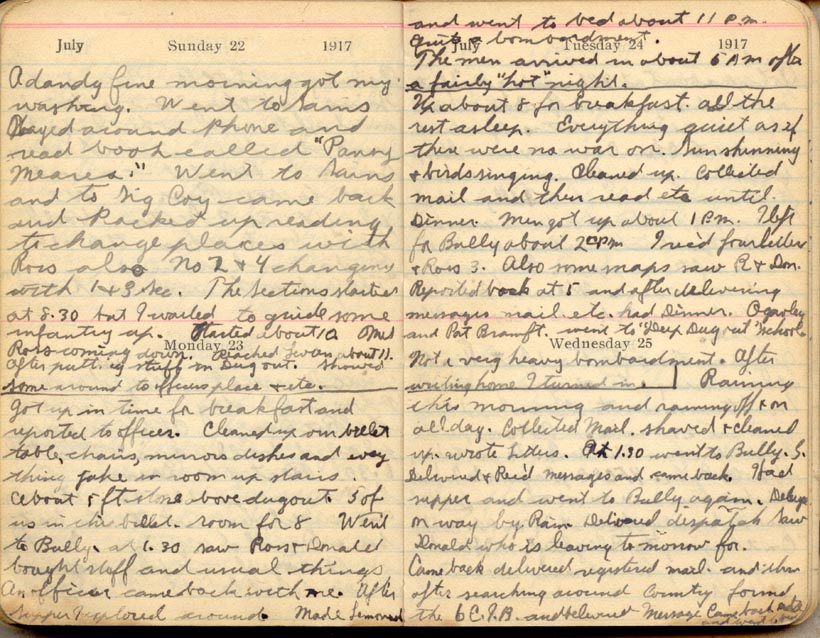 July Sunday 22 1917
A dandy fine morning got my
washing. Went to Sains
Played around Phone and
read book called "Pansy
Meares." Went to Sains
and to Sig Coy came back
and Packed up reading
to change places with
Ross also No 2 & 4 changing
with 1 & 3 Sec. The Sections started
at 8.30 but I waited to guide some
infantry up. Started about 10 Met
Ross coming down. Reached about 11.
Monday 23
After putting stuff in Dug out. Showed
some around to officers place & etc.
Got up in time for breakfast and
reported to officer. Cleaned up our billet
table, chairs, mirrors dishes and every
thing fake in room up stairs.
About 5 ft stone above dugout. 5 of
us in this billet. room for 8 Went
to Bully. at 1.30 saw Ross & Donald
bought stuff and usual things
An officer came back with me. After
supper explored around. Made Lemonade
and went to bed about 11 P.m.
Quite a bombardment.
July Tuesday 24 1917
The men arrived in about 5 A m after
a fairly "hot" night.
Up about 8 for breakfast. all the
rest asleep. Everything quiet as if
there were no war on. Sun shinning
& birds singing. Cleaned up. Collected
mail and then read etc until
Dinner. Men got up about 1 P.m. I left
for Bully about 2 Pm I rec'd four letters
& Ross 3. Also some maps saw R & Don.
Reported back at 5 and after delivering
messages mail etc. had Dinner.
and Pat went to "Deep Dug out"
Wednesday 25
Not a very heavy bombardment. After
writing home I turned in. Raining
this morning and raining off & on
all day. Collected Mail. shaved & cleaned
up. wrote letters. At 1.30 went to Bully. G.
Delivered & Rec'd messages and came back. Had
supper and went to Bully again. Delayed
on way by Rain. Delivered dispatch saw
Donald who is leaving to morrow for.
Came back delivered registered mail. and then
after searching around Country found
the 6 C.I.B. and delivered Message Came back
and went to bed